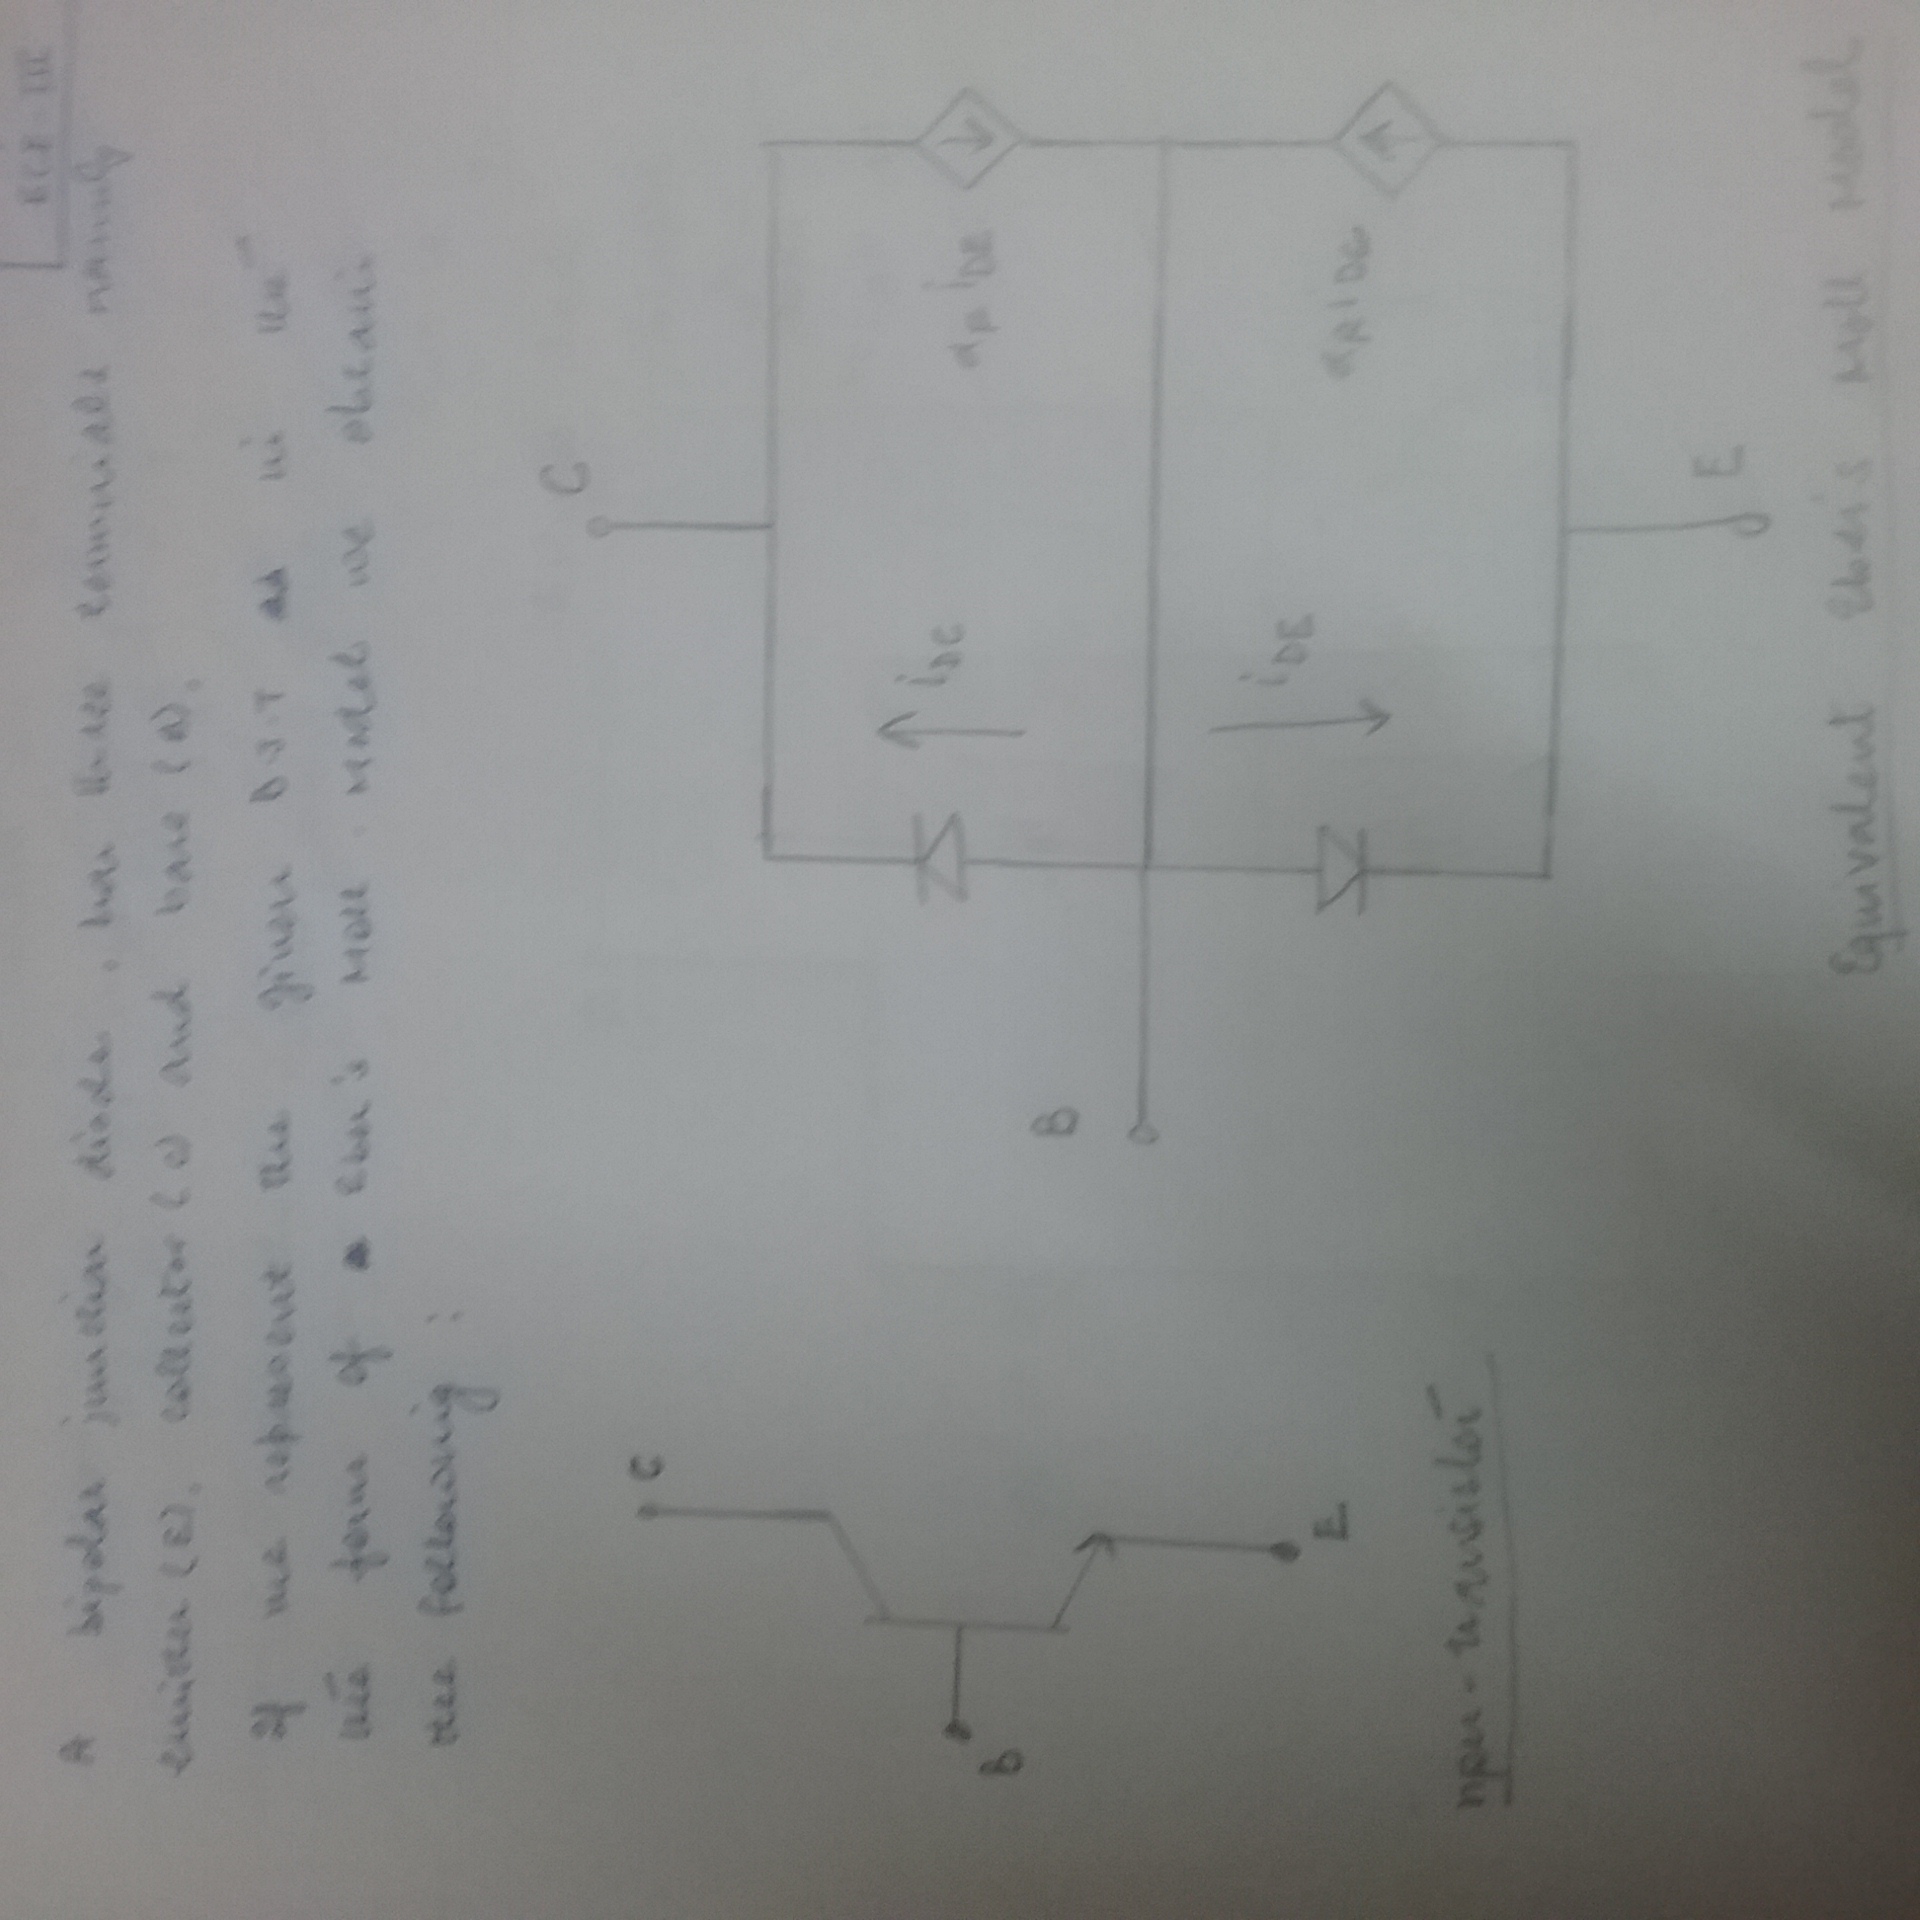 ECE-III
A bipolar junction diode, has three terminals namely
emitter (E), collector (C) and base (B).
If we represent the given B.J.T as in the
the form of a Eber's Moll Model we obtain
the following :
C
C
B
iDC
αF iDE
B
iDE
αR iDC
E
npn-transistor
E
Equivalent Eber's Moll Model